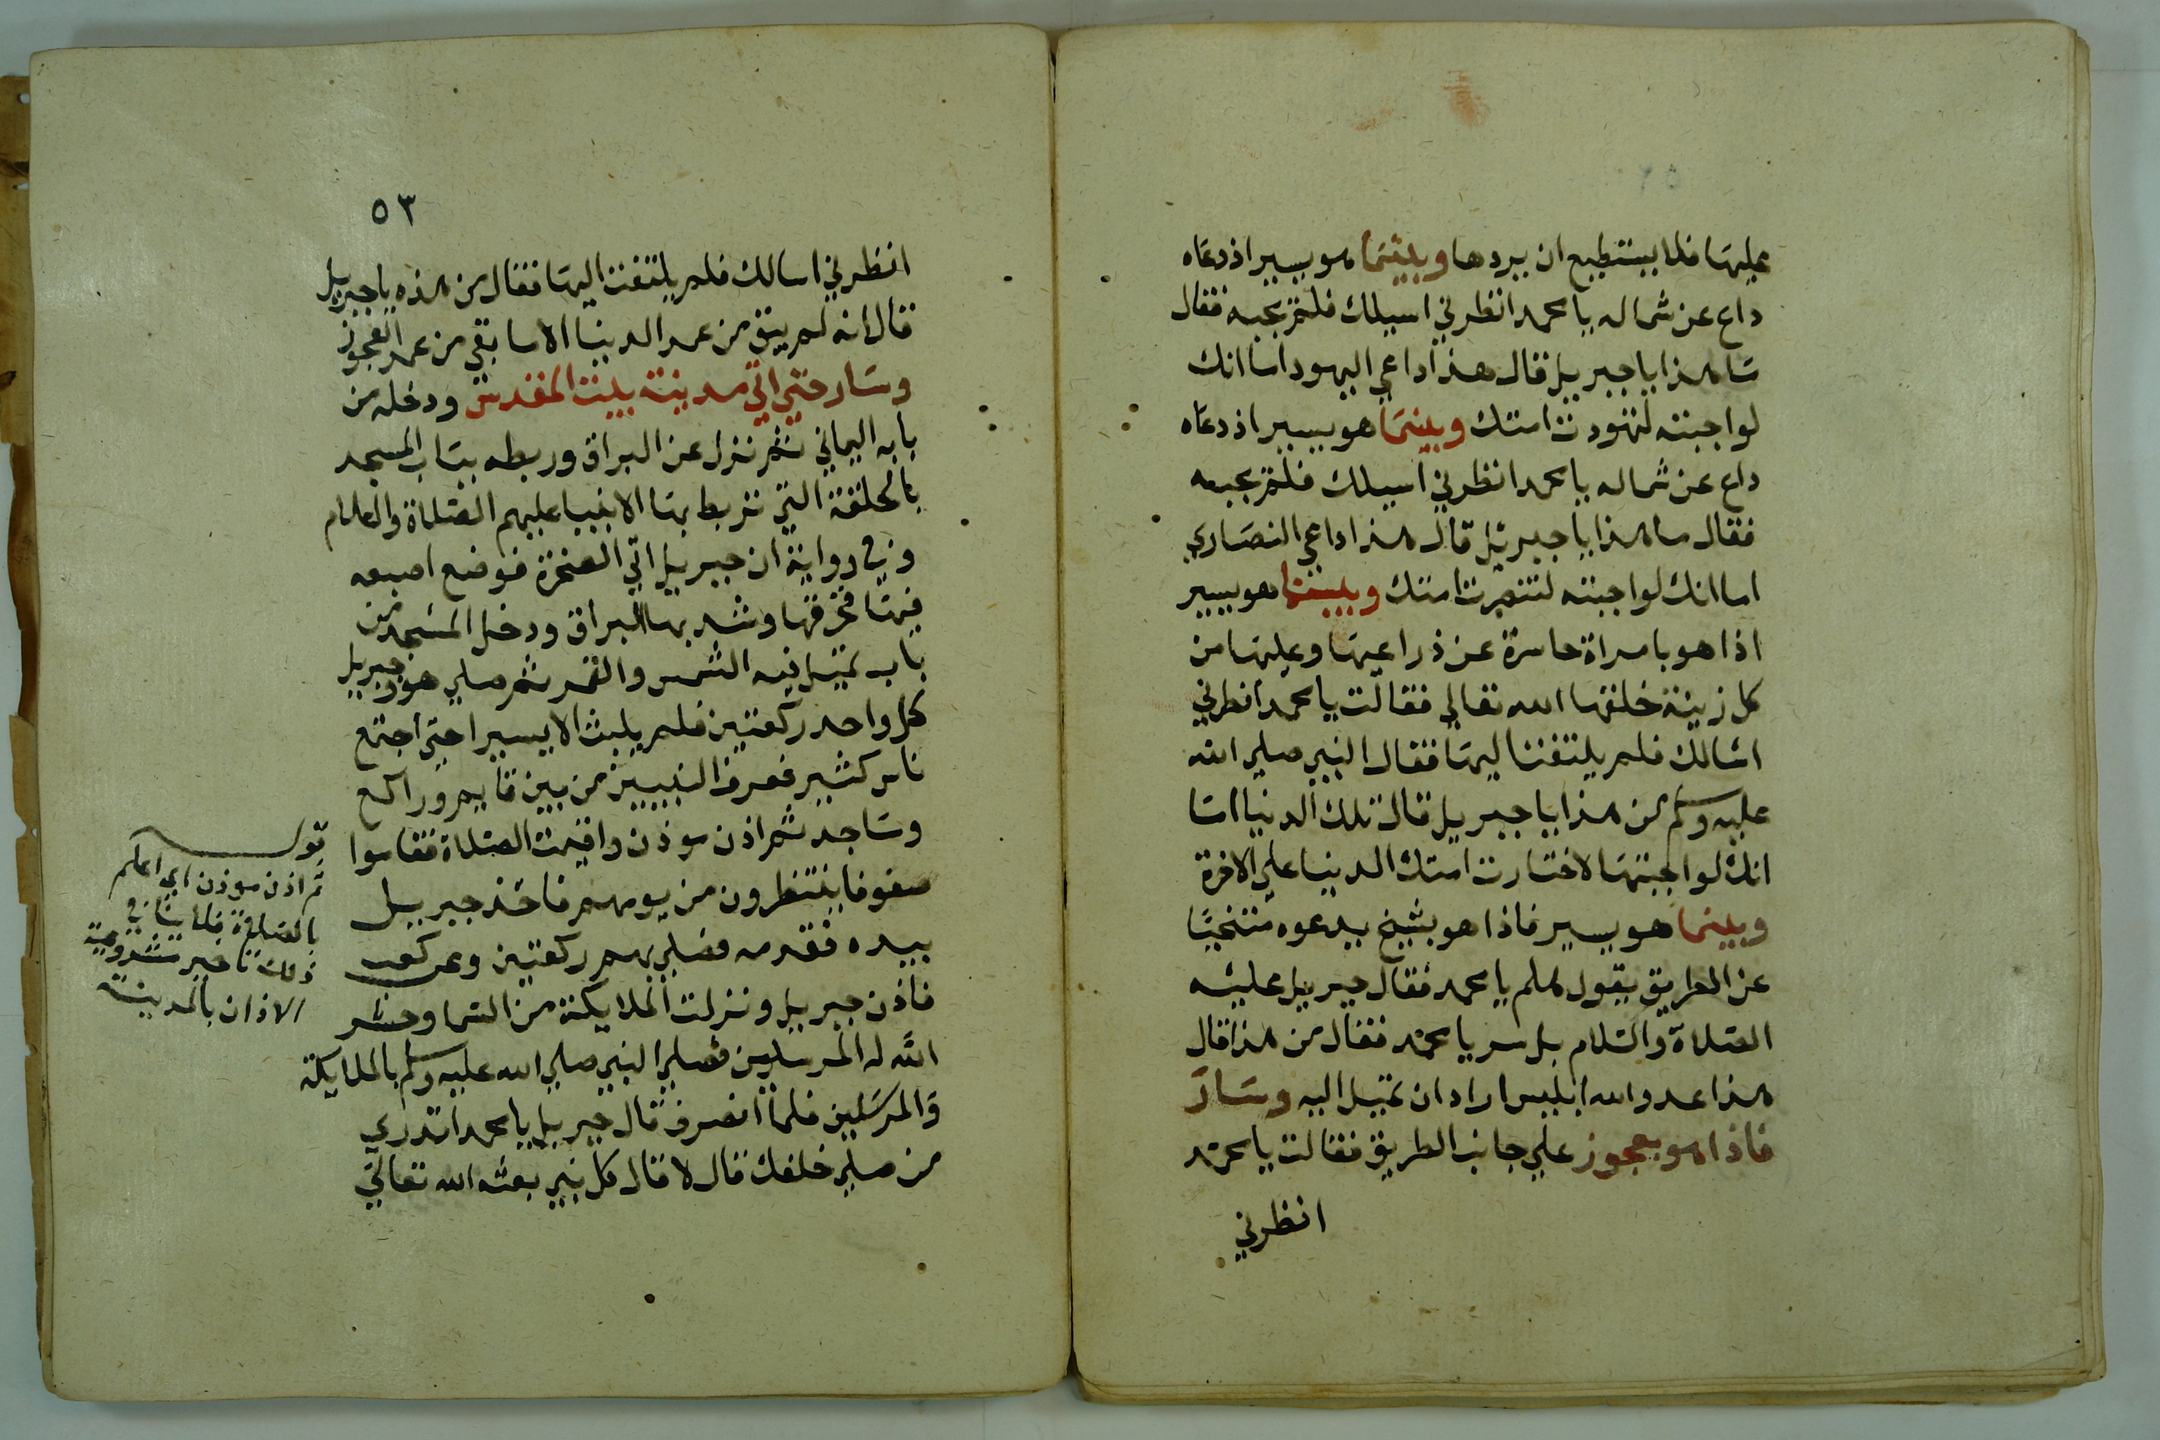 عليها فلا يستطيع ان يردها وبينما هو يسير اذ دعاه
داع عن شماله يا محمد انظرني اسيلك فلم يجبه فقال
ما هذا يا جبريل قال هذا داعي اليهود اما انك
لو اجبته لتهودت امتك وبينما هو يسير اذ دعاه
داع عن شماله يا محمد انظرني اسيلك فلم يجبه
فقال ما هذا يا جبريل قال هذا داعي النصاري
اما انك لو اجبته لتنصرت امتك وبينما هو يسير
اذا هو بامراة حاسرة عن ذراعيها وعليها من
كل زينة خلقها الله تعالي فقالت يا محمد انظرني
اسالك فلم يلتفت اليها فقال النبي صلي الله
عليه وسلم من هذا يا جبريل قال تلك الدنيا اما
انك لو اجبتها لاختارت امتك الدنيا علي الاخرة
وبينما هو يسير فاذا هو بشيخ يدعوه متنحيًا
عن الطريق يقول هلم يا محمد فقال جبريل عليه
الصلاة والسلام بل سر يا محمد فقال من هذا قال
هذا عدو الله ابليس اراد ان تميل اليه وسار
فاذا هو بعجوز علي جانب الطريق فقالت يا محمد
انظرني
٥٣
انظرني اسالك فلم يلتفت اليها فقال من هذه يا جبريل
قال انه لم يبق من عمر الدنيا الا ما بقي من عمر العجوز
وسار حتي اتي مدينة بيت المقدس ودخله من
بابه اليماني ثم نزل عن البراق وربطه بباب المسجد
بالحلقة التي تربط بها الانبيا عليهم الصلاة والسلام
وفي رواية ان جبريل اتي الصخرة فوضع اصبعه
فيها فخرقها وشد بها البراق ودخل المسجد من
باب تميل فيه الشمس والقمر ثم صلي هو وجبريل
كل واحد ركعتين فلم يلبث الا يسيرا حتي اجتمع
ناس كثير فعرف النبيين من بين قايم وراكع
وساجد ثم اذن موذن واقيمت الصلاة فقاموا
صفوفا ينتظرون من يومهم فاخذ جبريل
بيده فقدمه فصلي بهم ركعتين وعن كعب
فاذن جبريل ونزلت الملايكة من السما وحشر
الله له المرسلين فصلي النبي صلي الله عليه وسلم بالملايكة
والمرسلين فلما انصرف قال جبريل يا محمد اتدري
من صلي خلفك قال لا قال كل نبي بعثه الله تعالي
قوله
ثم اذن موذن اي اعلم
بالصلاة فلا ينافي
ذلك تاخير مشروعية
الاذان بالمدينة